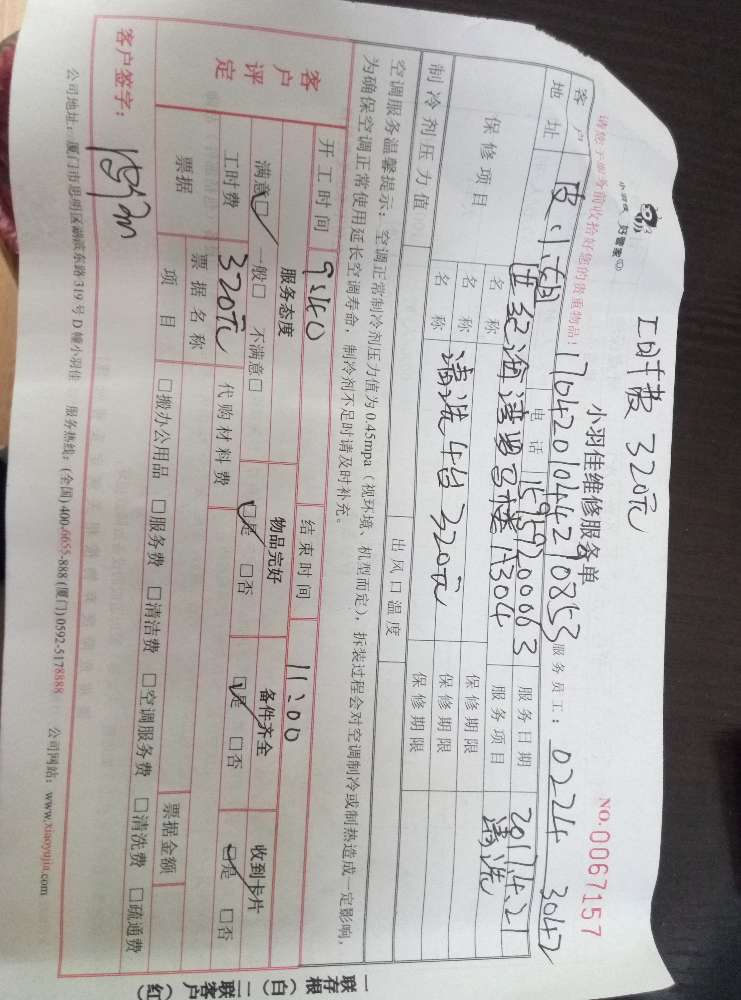 工时费 320元
小羽佳 好管家
小羽佳维修服务单
NO.0067157
请您于服务前收拾好您的贵重物品!
1704201044290853
服务员工: 0224 3042
客户
电话 15959200063 服务日期 2017.4.21
地址 世纪海湾 A304 服务项目 清洗
保修项目 名称 保修期限
名称 清洗4台320元 保修期限
名称 保修期限
制冷剂压力值 出风口温度
空调服务温馨提示:空调正常制冷剂压力值为0.45mpa(视环境、机型而定),拆装过程会对空调制冷或制热造成一定影响,
为确保空调正常使用延长空调寿命,制冷剂不足时请及时补充。
开工时间 9:40 结束时间 11:00
客户评定
服务态度 物品完好 备件齐全 收到卡片
满意□ 一般□ 不满意□ □是 □否 □是 □否 □是 □否
工时费 320元 代购材料费
票据 票据名称 票据金额
项目 □搬办公用品 □服务费 □清洁费 □空调服务费 □清洗费 □疏通费
客户签字:
公司地址:厦门市思明区湖滨东路319号D幢小羽佳 服务热线:(全国)400-6655-888(厦门)0592-5178888 公司网站:www.xiaoyujia.com
一联存根(白)二联客户(红)